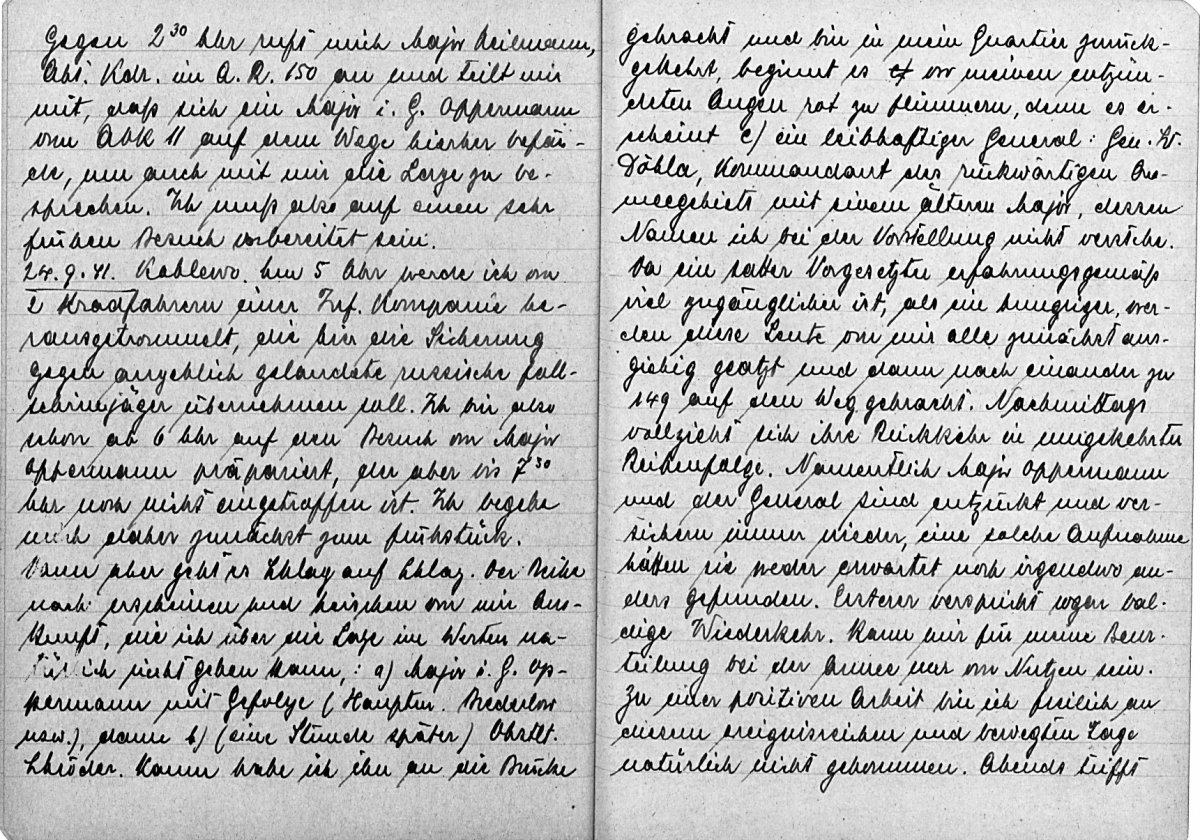 Gegen 2³⁰ Uhr ruft mich Major Heilmann,
Abt. Kdr. im A. R. 150 an und teilt mir
mit, daß sich ein Major i. G. Oppermann
vom AOK 11 auf dem Wege hierher befän-
de, um auch mit mir die Lage zu be-
sprechen. Ich muß also auf einen sehr
frühen Besuch vorbereitet sein.
24. 9. 41. Kablewo. Um 5 Uhr werde ich von
2 Kradfahrern einer Inf. Kompanie he-
rausgetrommelt, die hier die Sicherung
gegen angeblich gelandete russische Fall-
schirmjäger übernehmen soll. Ich bin also
schon ab 6 Uhr auf den Besuch von Major
Oppermann präpariert, der aber bis 7³⁰
Uhr noch nicht eingetroffen ist. Ich begebe
mich daher zunächst zum Frühstück.
Dann aber geht es Schlag auf Schlag. Der Reihe
nach erscheinen und heischen von mir Aus-
kunft, die ich über die Lage im Westen na-
türlich nicht geben kann,: a) Major i. G. Op-
permann mit Gefolge (Hauptm. Brederlow
usw.), dann b) (eine Stunde später) Obstlt.
Schröder. Kaum habe ich ihn an die Brücke
gebracht und bin in mein Quartier zurück-
gekehrt, beginnt es vor meinen entzün-
deten Augen rot zu flimmern, denn es er-
scheint c) ein leibhaftiger General: Gen. Lt.
Döhla, Kommandant des rückwärtigen Ar-
meegebiets mit einem älteren Major, dessen
Namen ich bei der Vorstellung nicht verstehe.
Da ein satter Vorgesetzter erfahrungsgemäß
viel zugänglicher ist, als ein hungriger, wer-
den diese Leute von mir alle zunächst aus-
giebig geatzt und dann nach einander zu
149 auf den Weg gebracht. Nachmittags
vollzieht sich ihre Rückkehr in umgekehrter
Reihenfolge. Namentlich Major Oppermann
und der General sind entzückt und ver-
sichern immer wieder, eine solche Aufnahme
hätten sie weder erwartet noch irgendwo an-
ders gefunden. Ersterer verspricht sogar bal-
dige Wiederkehr. Kann mir für meine Beur-
teilung bei der Armee nur von Nutzen sein.
Zu einer positiven Arbeit bin ich freilich an
diesem ereignisreichen und bewegten Tage
natürlich nicht gekommen. Abends trifft